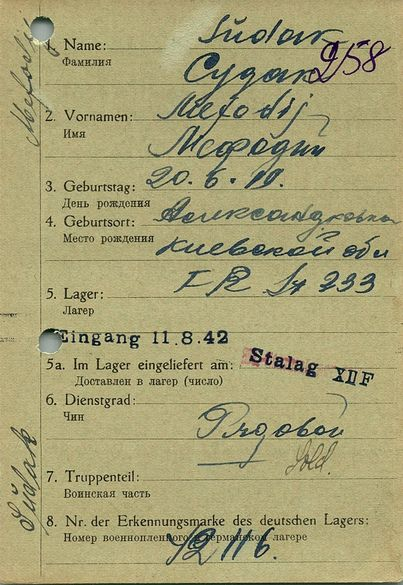 Sudak
1. Name:
Фамилия
Судак
958
Mefodij
2. Vornamen: Mefodij
Имя
Мефодий
3. Geburtstag: 20.6.19.
День рождения
4. Geburtsort: Александровка
Место рождения
Киевской обл
5. Lager:
Лагер
Eingang 11.8.42
5a. Im Lager eingeliefert am: Stalag XII F
Доставлен в лагер (число)
6. Dienstgrad:
Чин
Рядовой
Sold.
7. Truppenteil:
Воинская часть
Sudak
8. Nr. der Erkennungsmarke des deutschen Lagers:
Номер военнопленного в германском лагере